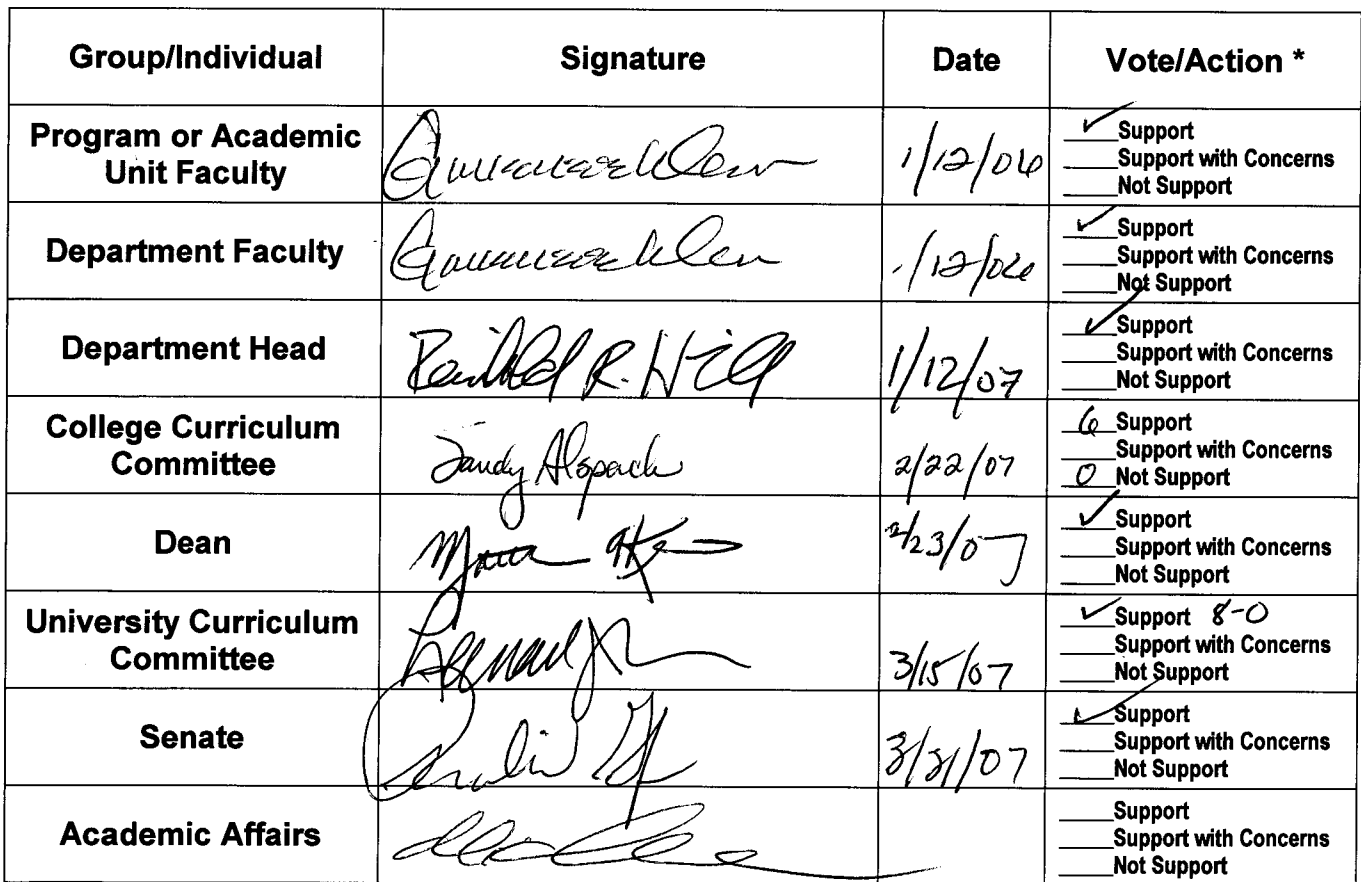 Group/Individual Signature Date Vote/Action *
Program or Academic
Unit Faculty
1/12/06
✓ Support
____Support with Concerns
____Not Support
Department Faculty
1/12/06
✓ Support
____Support with Concerns
____Not Support
Department Head
R. Hill
1/12/07
✓ Support
____Support with Concerns
____Not Support
College Curriculum
Committee
Sandy Alspach
2/22/07
6 Support
____Support with Concerns
0 Not Support
Dean
2/23/07
✓ Support
____Support with Concerns
____Not Support
University Curriculum
Committee
3/15/07
✓ Support 8-0
____Support with Concerns
____Not Support
Senate
✓ Support
____Support with Concerns
____Not Support
Academic Affairs
____Support
____Support with Concerns
____Not Support